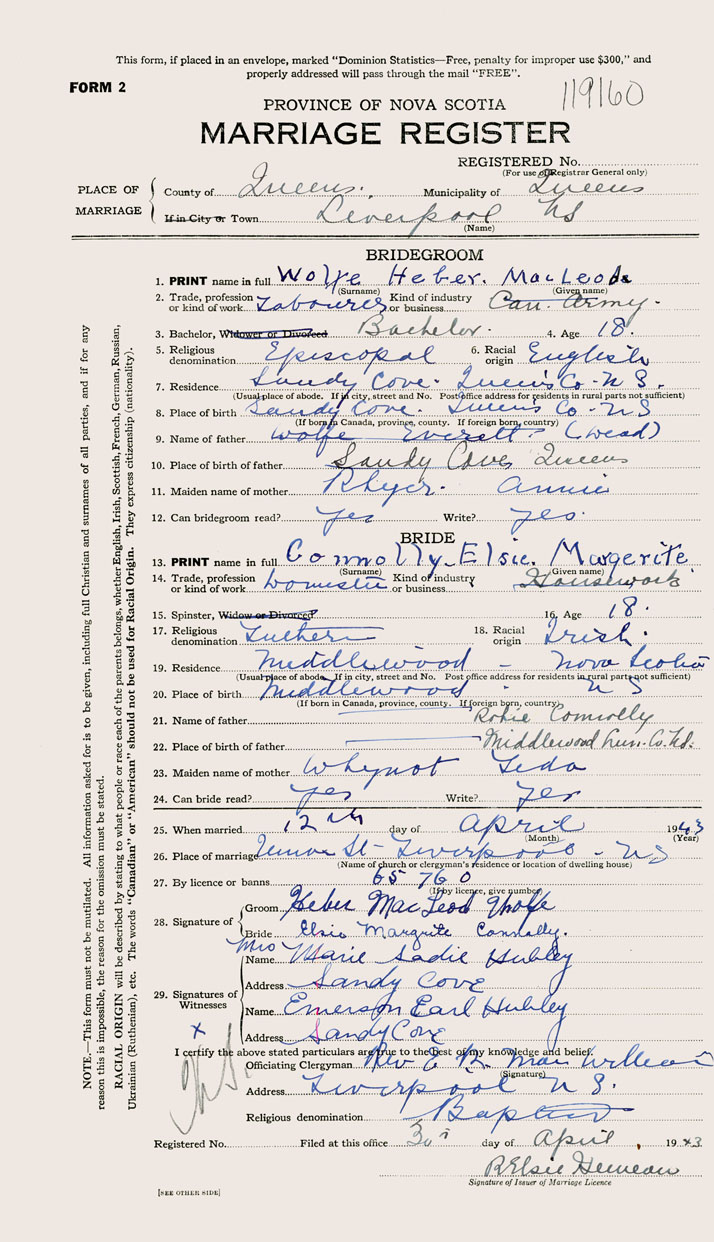 This form, if placed in an envelope, marked "Dominion Statistics—Free, penalty for improper use $300," and
properly addressed will pass through the mail "FREE".
FORM 2
119160
PROVINCE OF NOVA SCOTIA
MARRIAGE REGISTER
REGISTERED No.
(For use of Registrar General only)
PLACE OF MARRIAGE
County of Queens. Municipality of Queens
If in City or Town Liverpool NS
(Name)
BRIDEGROOM
1. PRINT name in full Wolfe Heber. MacLeod
(Surname) (Given name)
2. Trade, profession or kind of work Labourer Kind of industry or business Can. Army.
3. Bachelor, Widower or Divorced Bachelor. 4. Age 18.
5. Religious denomination Episcopal 6. Racial origin English
7. Residence Sandy Cove. Queens Co - N S.
(Usual place of abode. If in city, street and No. Post office address for residents in rural parts not sufficient)
8. Place of birth Sandy Cove. Queens Co - NS
(If born in Canada, province, county. If foreign born, country)
9. Name of father Wolfe Everett. (Dead)
10. Place of birth of father Sandy Cove Queens
11. Maiden name of mother Rhyer. Annie
12. Can bridegroom read? yes Write? yes.
BRIDE
13. PRINT name in full Connolly Elsie. Margerite
(Surname) (Given name)
14. Trade, profession or kind of work Domestic Kind of industry or business Housework
15. Spinster, Widow or Divorced 16. Age 18.
17. Religious denomination Luthern 18. Racial origin Irish.
19. Residence Middlewood - Nova Scotia
(Usual place of abode. If in city, street and No. Post office address for residents in rural parts not sufficient)
20. Place of birth Middlewood - N S
(If born in Canada, province, county. If foreign born, country)
21. Name of father Robie Connolly
22. Place of birth of father Middlewood Lun. Co. N.S.
23. Maiden name of mother Whynot Leda
24. Can bride read? yes Write? yes
25. When married 12th day of April 1943
(Month) (Year)
26. Place of marriage Union St - Liverpool - NS
(Name of church or clergyman's residence or location of dwelling house)
27. By licence or banns 65760
(If by licence, give number)
28. Signature of
Groom Heber MacLeod Wolfe
Bride Elsie Margrite Connolly.
29. Signatures of Witnesses
Name Mrs Marie Sadie Hubley
Address Sandy Cove
Name Emerson Earl Hubley
Address Sandy Cove
X
I certify the above stated particulars are true to the best of my knowledge and belief.
Officiating Clergyman Rev E
(Signature)
Address Liverpool N S.
Religious denomination Baptist
Registered No. Filed at this office 30th day of April, 1943
Elsie
Signature of Issuer of Marriage Licence
[SEE OTHER SIDE]
NOTE.—This form must not be mutilated. All information asked for is to be given, including full Christian and surnames of all parties, and if for any
reason this is impossible, the reason for the omission must be stated.
RACIAL ORIGIN will be described by stating to what people or race each of the parents belongs, whether English, Irish, Scottish, French, German, Russian,
Ukrainian (Ruthenian), etc. The words "Canadian" or "American" should not be used for Racial Origin. They express citizenship (nationality).